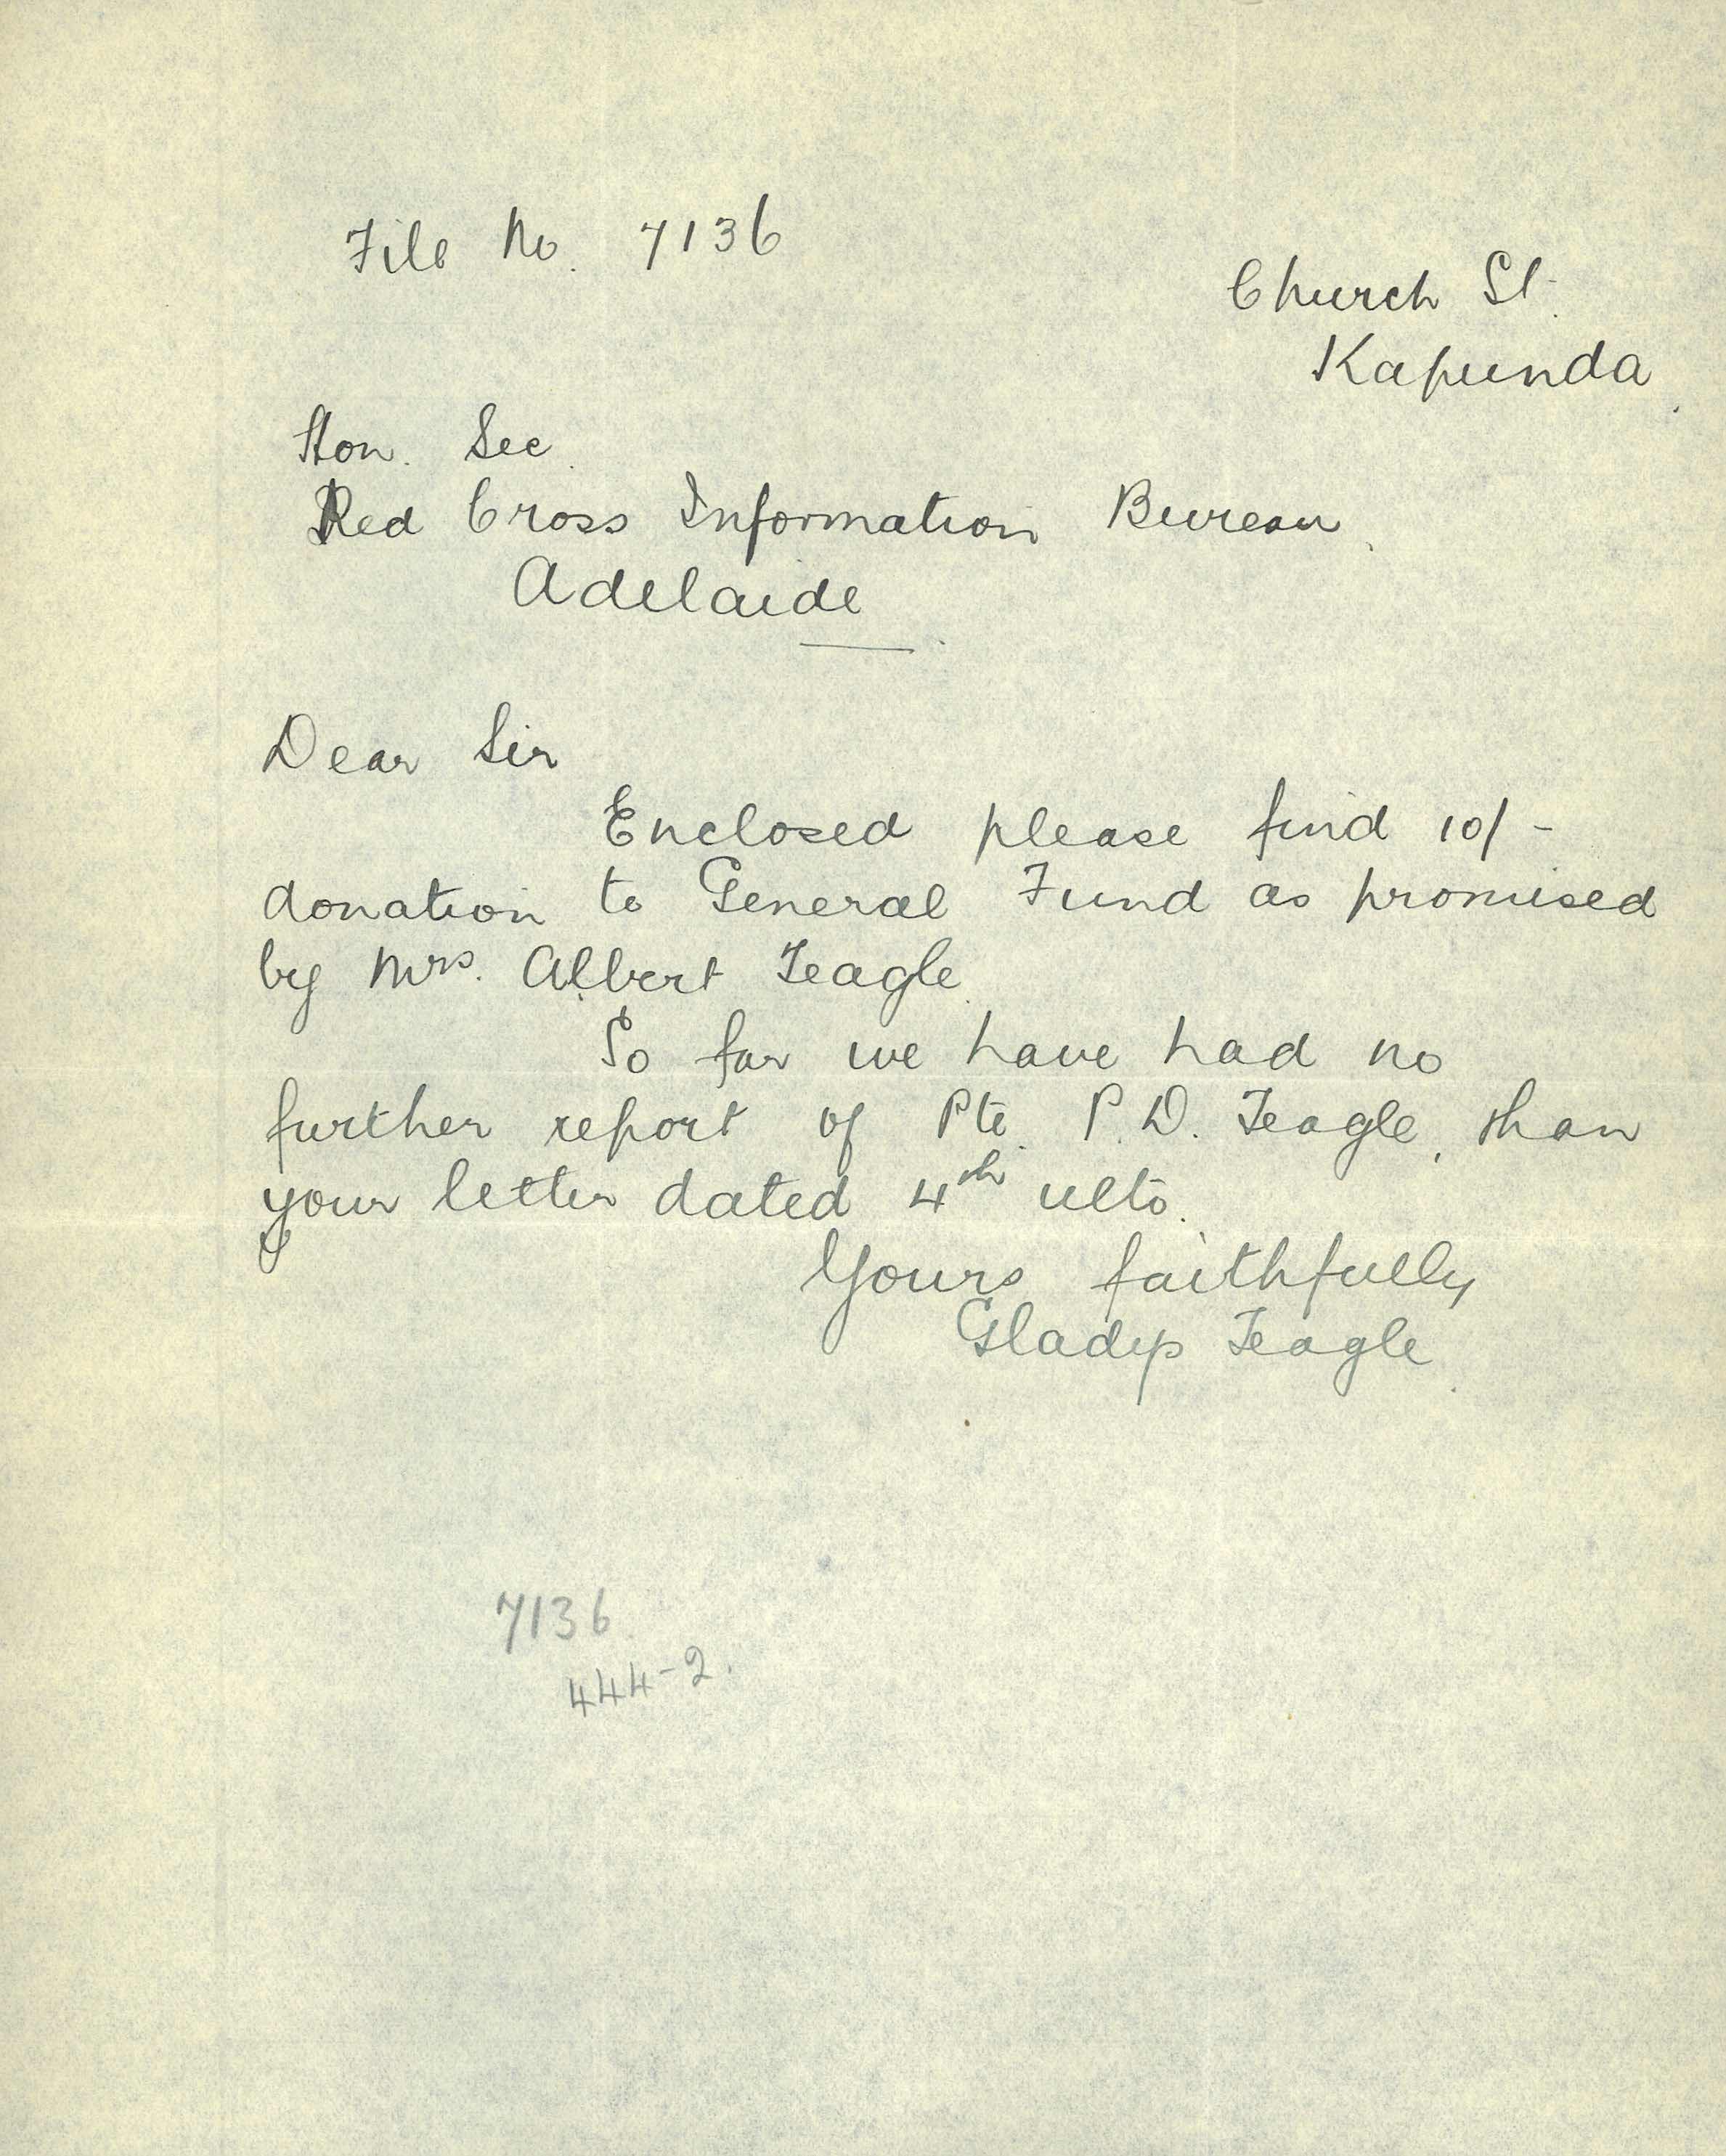 File No. 7136
Church St.
Kapunda.
Hon. Sec.
Red Cross Information Bureau.
Adelaide
Dear Sir
Enclosed please find 10/-
donation to General Fund as promised
by Mrs. Albert Teagle.
So far we have had no
further report of Pte. P. D. Teagle, than
your letter dated 4th ulto.
Yours faithfully
Gladys Teagle.
7136.
444-2.